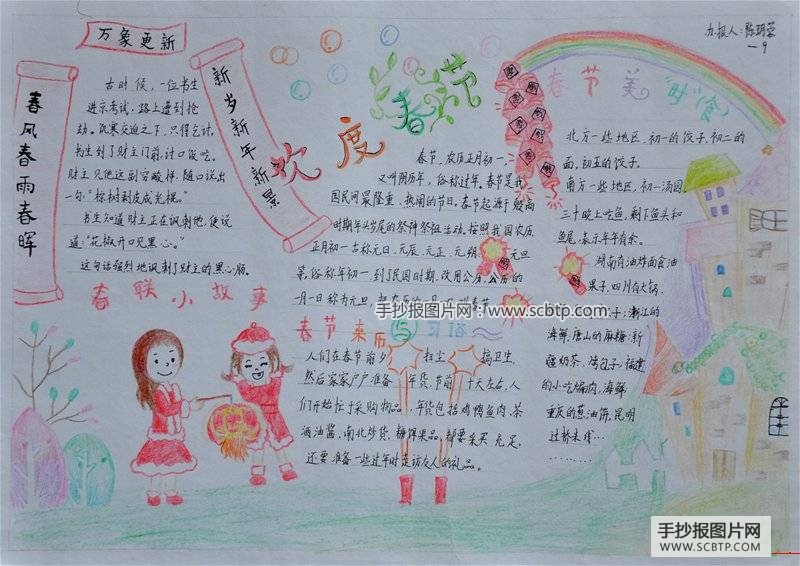 万象更新
春风春雨春晖
新岁新年新景
古时候,一位书生
进京考试,路上遭到抢
劫。饥寒交迫之下,只得乞讨。
书生到了财主门前,讨口饭吃。
财主见他这副穷酸样,随口说出
一句:“棕树剥皮成光棍。”
书生知道财主正在讽刺他,便说
道:“花椒开口见黑心。”
这句话强烈地讽刺了财主的黑心肠。
春联小故事
欢度春节
春节,农历正月初一,
又叫阴历年,俗称过年。春节是我
国民间最隆重、热闹的节日。春节起源于殷商
时期年头岁尾的祭神祭祖活动。按照我国农历,
正月初一古称元日、元辰、元正、元朔、元旦
等,俗称年初一,到了民国时期,改用公历,公历的
一月一日称为元旦,
春节来历
人们在春节前夕 扫尘 搞卫生,
然后家家户户准备 年货,节前 十天左右,人
们开始忙于采购物品,年货包括鸡鸭鱼肉、茶
酒油酱、南北炒货、糖饵果品,都要采买充足,
还要准备一些过年时走访友人的礼品。
办报人:
一9
春节美食
北方一些地区,初一的饺子,初二的
面,初五的饺子。
南方一些地区,初一汤圆
三十晚上吃鱼,剩下鱼头和
鱼尾,表示年年有余。
湖南有油炸面食油
果子,四川有火锅、
子;浙江的
海鲜,唐山的麻糖;新
疆奶茶、烤包子;福建
的小吃扁肉,海鲜
重庆的葱油饼,昆明
过桥米线…
手抄报图片网:www.scbtp.com
手抄报图片网
WWW.SCBTP.COM